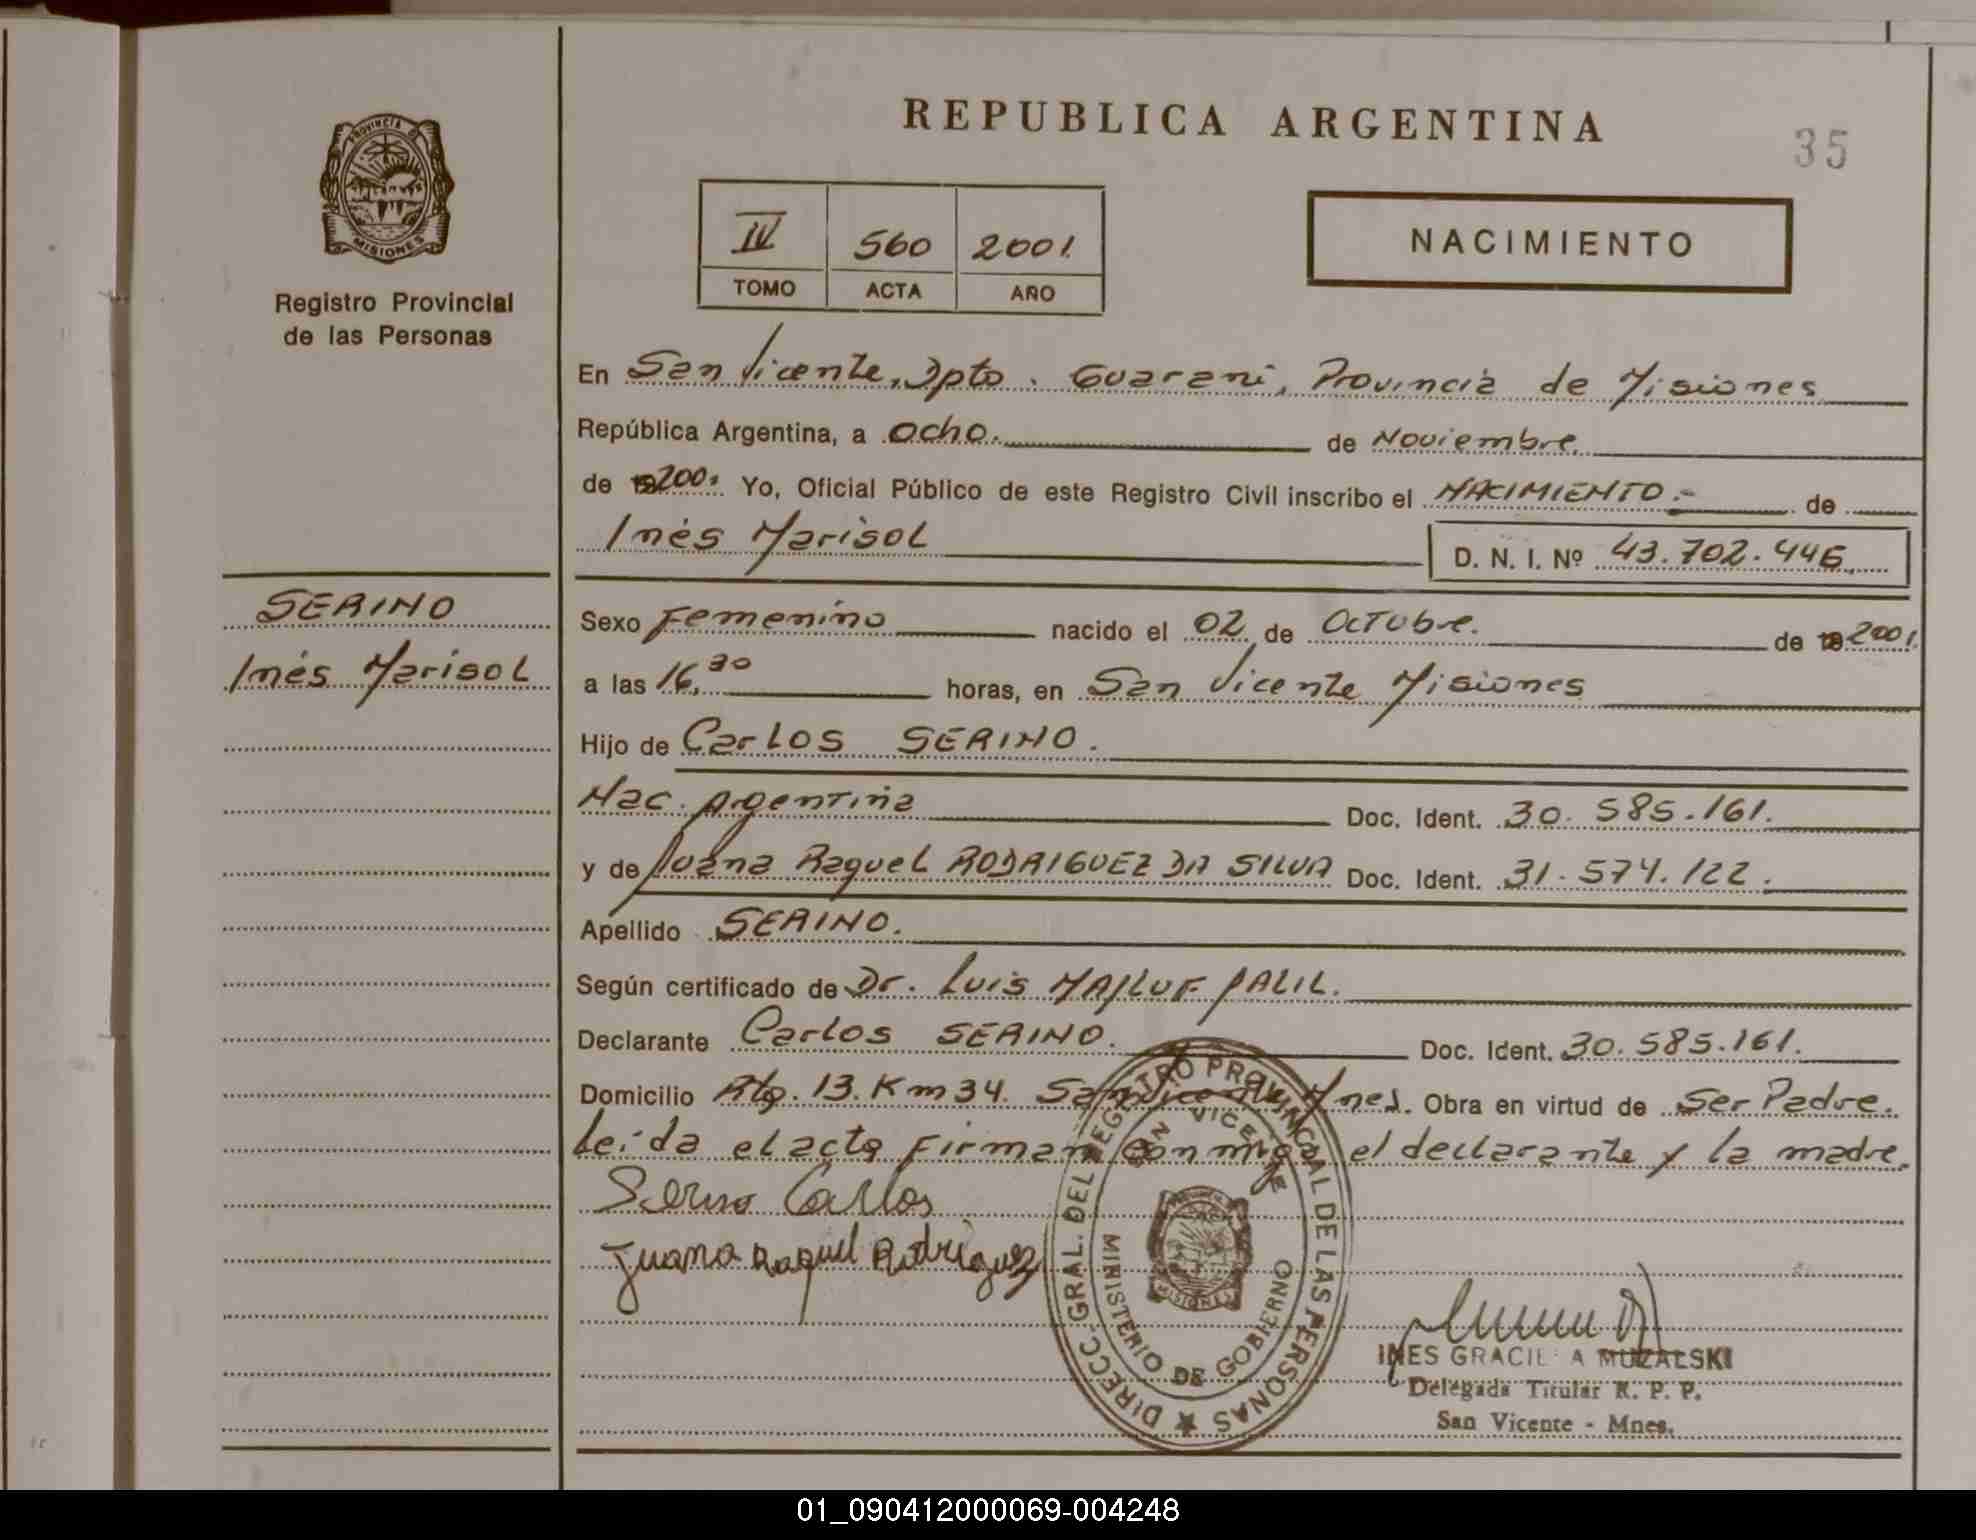 REPUBLICA ARGENTINA
35
PROVINCIA D
MISIONES
Registro Provincial
de las Personas
IV 560 2001.
TOMO ACTA AÑO
NACIMIENTO
En San Vicente, Dpto. Guaraní, Provincia de Misiones
República Argentina, a ocho. de Noviembre.
de 2001 Yo, Oficial Público de este Registro Civil inscribo el NACIMIENTO.- de
Inés Marisol
D. N. I. Nº 43.702.446
SERINO
Inés Marisol
Sexo Femenino nacido el 02 de Octubre. de 2001.
a las 16,30 horas, en San Vicente Misiones
Hijo de Carlos SERINO.
Nac. Argentina Doc. Ident. 30.585.161.
y de Juana Raquel RODRIGUEZ DA SILVA Doc. Ident. 31.574.122.
Apellido SERINO.
Según certificado de Dr. Luis MAJLUF JALIL.
Declarante Carlos SERINO. Doc. Ident. 30.585.161.
Domicilio Rta. 13. Km 34. San Vicente Mnes. Obra en virtud de Ser Padre.
Leída el acta Firman conmigo el declarante y la madre.
Serino Carlos
Juana Raquel Rodriguez
DIRECC. GRAL. DEL REGISTRO PROVINCIAL DE LAS PERSONAS
SAN VICENTE
MISIONES
MINISTERIO DE GOBIERNO
INES GRACIELA MUZALSKI
Delegada Titular R. P. P.
San Vicente - Mnes.
01_090412000069-004248